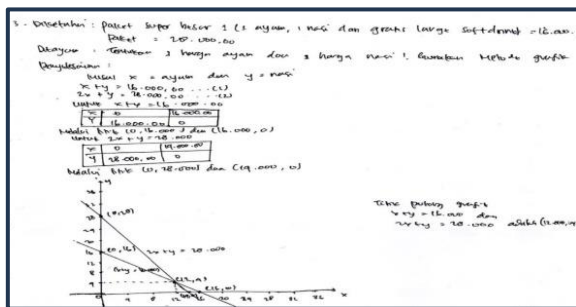 3. Diketahui : paket super besar 1 (1 ayam, 1 nasi dan gratis large softdrink) = 16.000.
Paket = 28.000.00
Ditanya : Tentukan 1 harga ayam dan 1 harga nasi !, Gunakan Metode grafik
Penyelesaian :
Misal x = ayam dan y = nasi
x + y = 16.000,00 ... (1)
2x + y = 28.000,00 ... (2)
Untuk x + y = 16.000.00
X 0 16.000.00
Y 16.000.00 0
Melalui titik (0, 16.000) dan (16.000, 0)
Untuk 2x + y = 28.000
X 0 14.000.00
Y 28.000,00 0
Melalui titik (0, 28.000) dan (14.000, 0)
y
(0,28)
(0,16) 2x + y = 28.000
(12,4)
(16,0)
x
Titik potong grafik
x + y = 16.000 dan
2x + y = 28.000 adalah